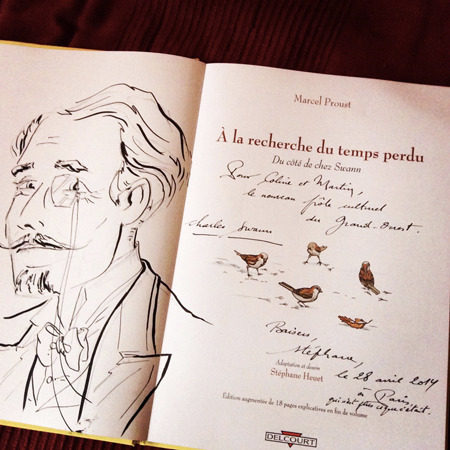 Marcel Proust
À la recherche du temps perdu
Du côté de chez Swann
Pour Coline et Martin,
le nouveau pôle culturel
du Grand-Ouest.
Charles Swann
Baisers,
Stéphane,
Adaptation et dessin
Stéphane Heuet
le 28 avril 2014
à Paris,
qui est plus
Édition augmentée de 18 pages explicatives en fin de volume
DELCOURT